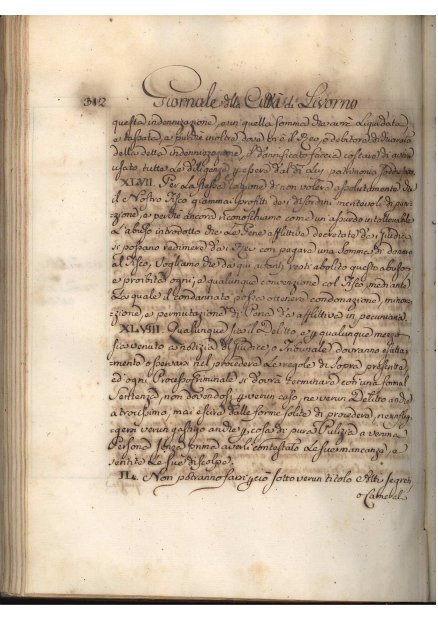 312 Giornale della Città di Livorno
questa indennizazione, e in quella somma che avrà liquidata,
e tassata, e purchè inoltre dove vi è il Reo, o debitore di ducaria
della detta indennizzazione, il dannificato faccia costare di avere
usato tutte le diligenze, e spera dal di lui patrimonio
XLVII. Per la stessa ragione di non volere assolutamente che
il Nostro Fisco guammai profitti dei disordini meritevoli di puni=
zione, e perchè ancora riconoschiamo come un assurdo intollerabile
l'abuso introdotto che le Pene afflittive decretate dai Giudici
si possano redimere da' Rei con pagare una somma di danaro
al Fisco, Vogliamo che da qui avanti resti abolito questo abuso,
e proibita ogni, e qualunque convenzione col Fisco mediante
la quale il condannato possa ottenere condonazione, minor=
azione, e permutazione di Pena da afflittiva in pecuniaria.
XLVIII. Qualunque sia il Delitto e per qualunque mezzo
sia venuto a notizia del Giudice o Tribunale dovranno esatta=
mente osservare nel procedere le regole di sopra presentate
ed ogni Processo Criminale si dovrà terminare con una formal
Sentenza, non dovendosi per verun caso, ne verun Delitto anche
atrocissimo, mai escire dalle forme solite di procedere, ne infli=
ggersi verun gastigo anche per cosa di pura Pulizia a veruna
Persona senza prima averli contestato le sue mancanze, e
sentite le sue discolpe.
IL. Non potranno farsi perciò sotto verun titolo Atti segreti
o Cameral=